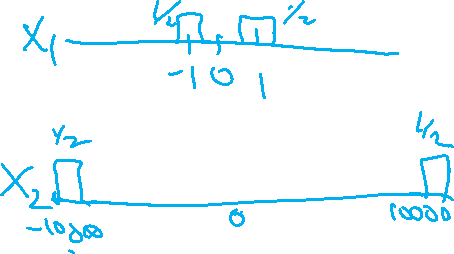 1/2 1/2
X1
-1 0 1
1/2 1/2
X2
-10000 0 10000